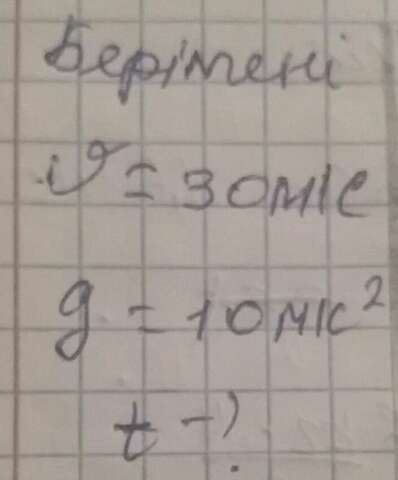 Берілгені
𝜗 = 30м/с
g = 10м/с²
t - ?